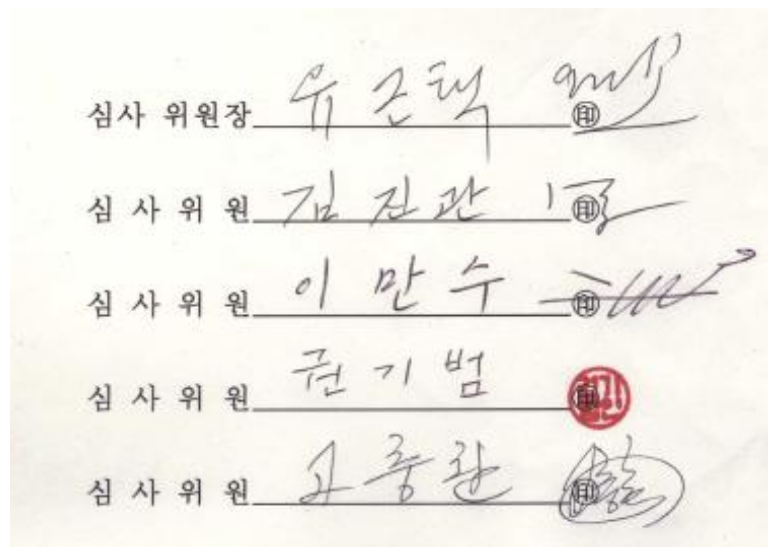 심사 위원장 유근택 印
심 사 위 원 김진관 印
심 사 위 원 이만수 印
심 사 위 원 권기범 印
심 사 위 원 印